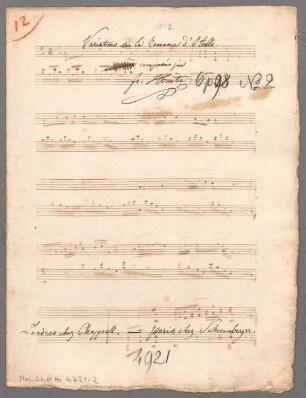 12
2
Variations sur la Romance d'Otello
composées par
fr. Hünten Op 98 No 2
Londres chez Chappell. — Paris chez Schonenberger.
4921
Mus. Schott. Ha 4721-2